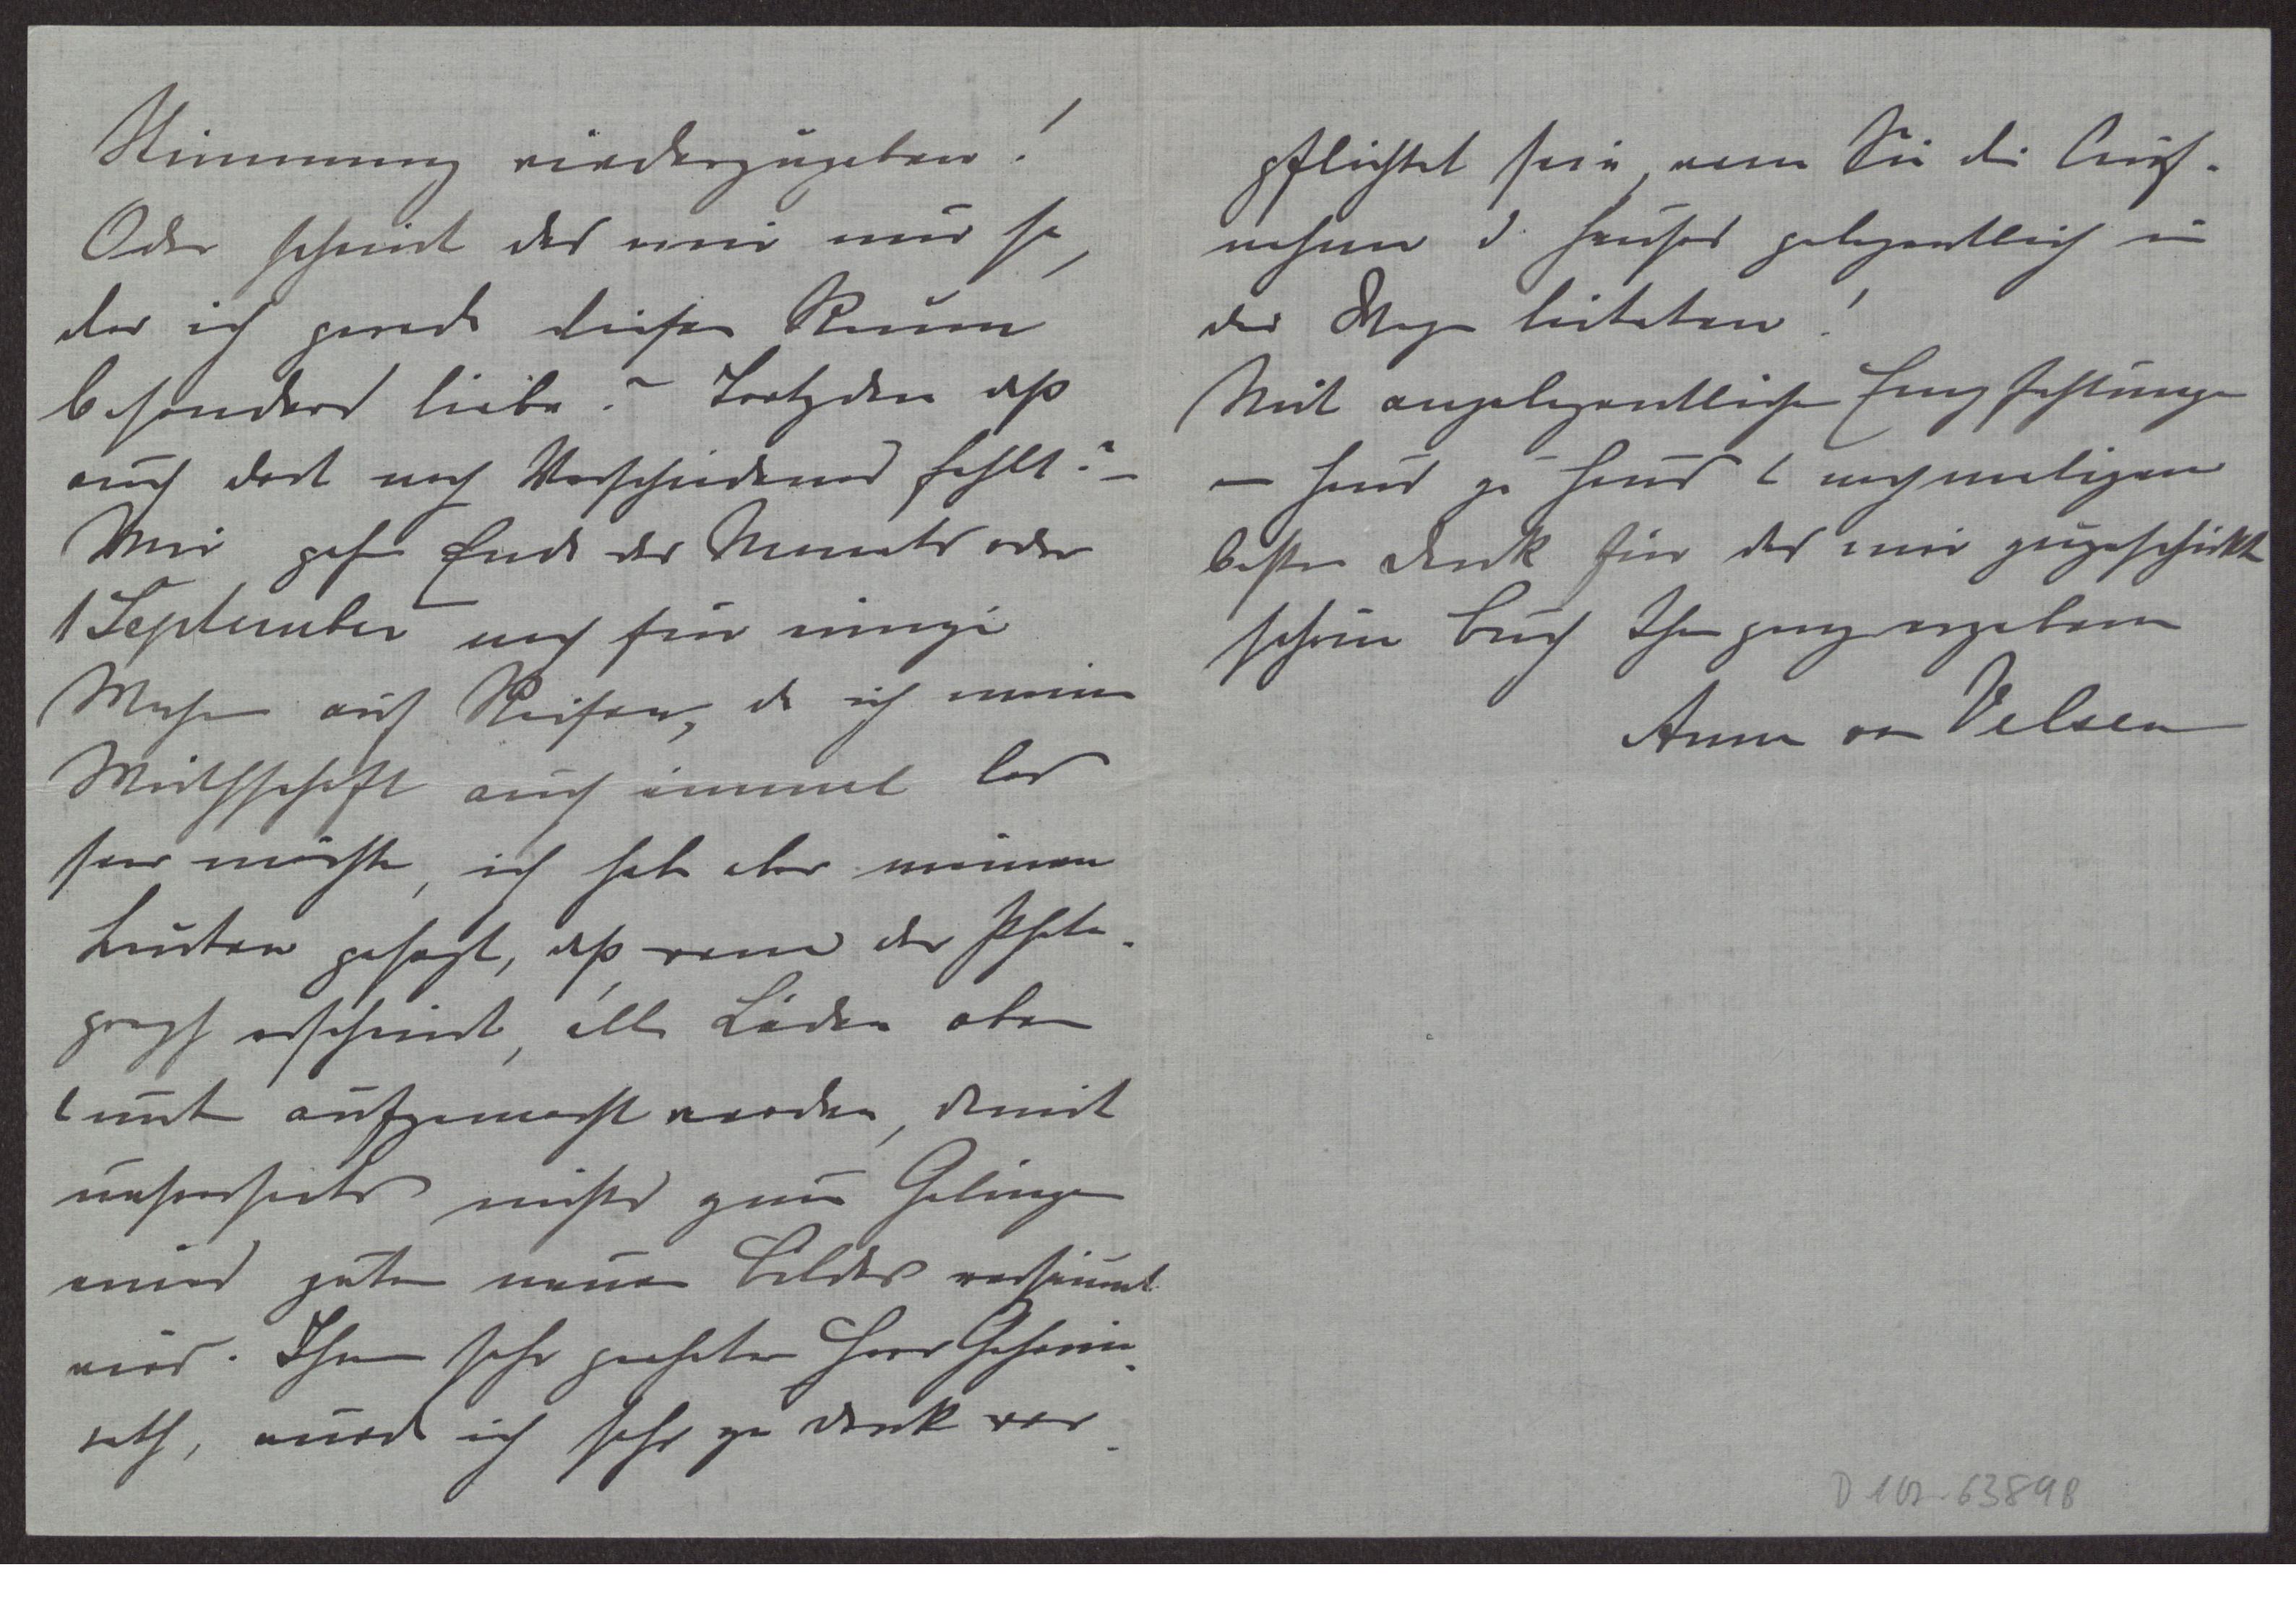 Stimmung wiederzugeben!
Oder scheint das mir nur so,
der ich gerade diesen Raum
besonders liebe? Trotzdem daß
auch dort noch Verschiedenes fehlt? –
Wir gehen Ende des Monats oder
1 September noch für einige
Wochen auf Reisen, da ich meine
Wirthschaft auch einmal los
sein möchte, ich habe aber meinen
Leuten gesagt, daß wenn der Photo-
graph erscheint, alle Läden oben
& unten aufgemacht werden, damit
unsererseits nichts zum Gelingen
eines guten neuen Bildes versäumt
wird. Ihnen sehr geehrter Herr Geheim-
rath, würde ich sehr zu Dank ver-
pflichtet sein, wenn Sie die Auf-
nahme d. Hauses gelegentlich in
die Wege leiteten!
Mit angelegentlichen Empfehlungen
von Haus zu Haus & nochmaligem
besten Dank für das mir zugeschickte
schöne Buch Ihr ganz ergebene
Anna von Velsen
D 102-63898